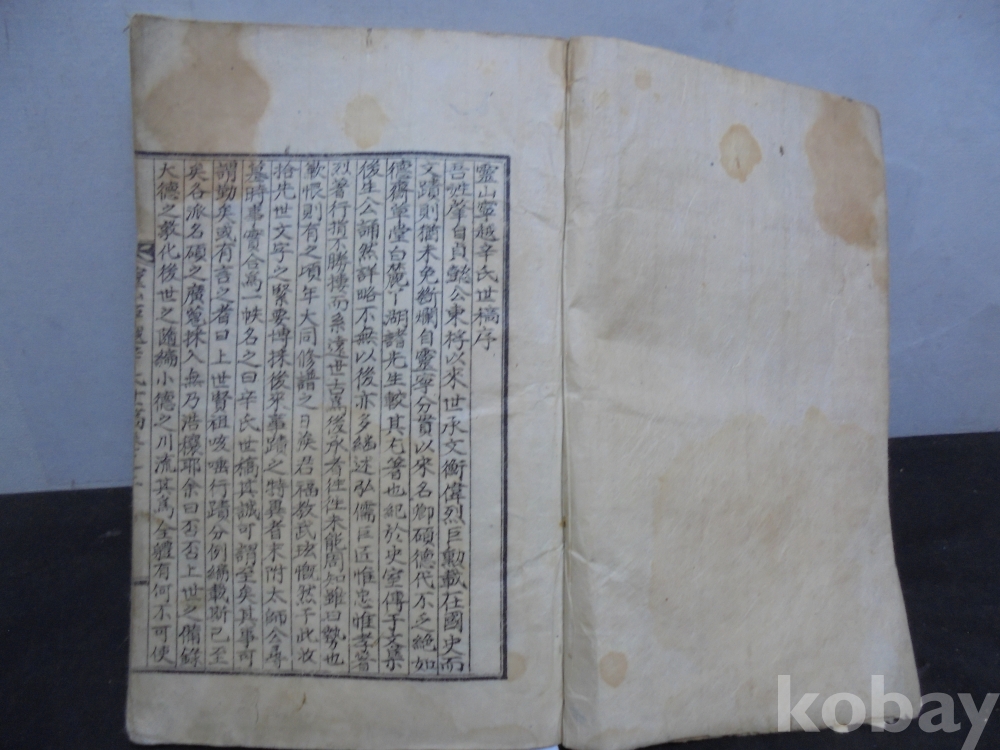 靈山寧越辛氏世稿序
吾姓肇自貞懿公東將以來世承文衡偉烈巨勳載在國史而
文蹟則猶未免斷爛自靈寧分貫以來名卿碩德代不乏絕如
德齋草堂白麓 湖諸先生較其尤著也紀於史室傳于文集
後生公誦然詳略不無以後亦多繼述弘儒巨匠惟忠惟孝昔
烈著行指不勝摟而系遠世古爲後承者往往未能周知雖曰勢也
歉恨則有之頃年大同修譜之日族君福教武玹慨然于此收
拾先世文字之緊要博採後牙事蹟之特異者末附太師公尋
墓時事實合爲一帙名之曰辛氏世稿其誠可謂至矣其事可
謂勤矣或有言之者曰上世賢祖咳唾行蹟分例編載斯已至
矣名派名碩之廣蒐採入無乃浩穰耶余曰否否上世之備錄
大德之敦化後世之隨編小德之川流其爲全體有何不可使
kobay